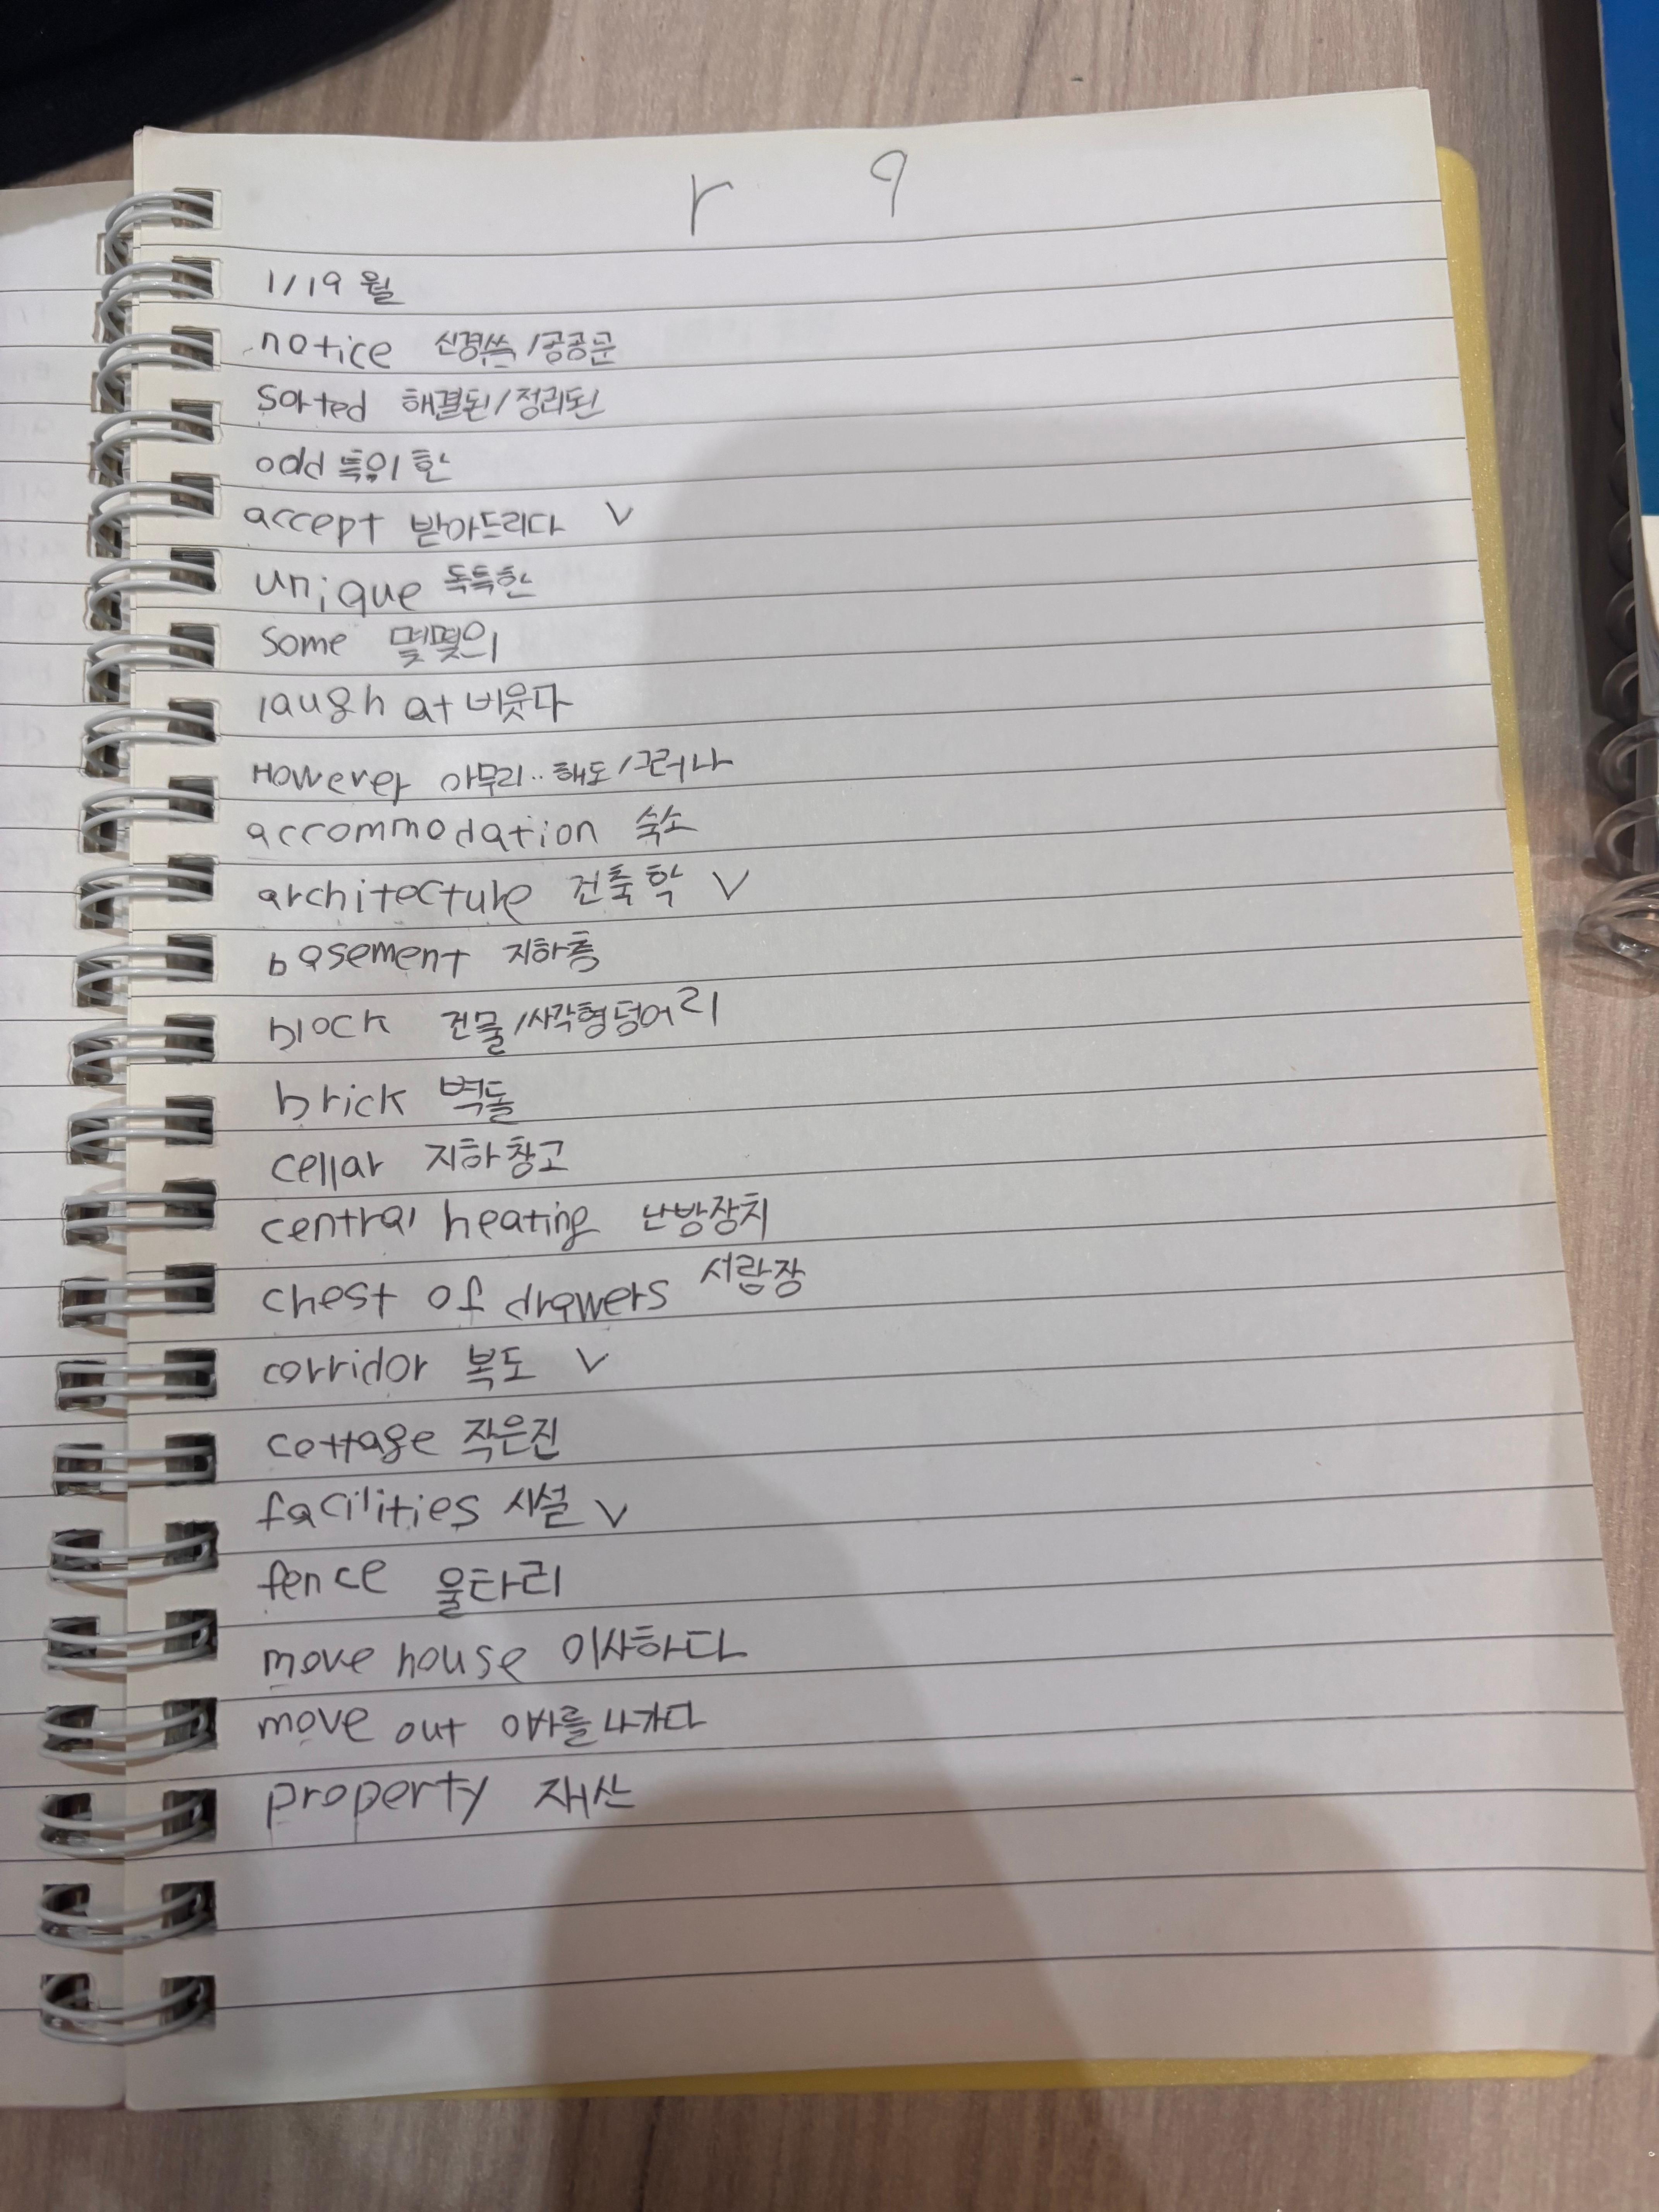 r 9
1/19 월
notice 신경쓱/공공문
sorted 해결된/정리된
odd 특이한
accept 받아드리다 V
unique 독특한
some 몇몇의
laugh at 비웃다
However 아무리..해도/그러나
accommodation 숙소
architecture 건축학 V
basement 지하층
block 건물/사각형덩어리
brick 벽돌
cellar 지하창고
central heating 난방장치
chest of drawers 서랍장
corridor 복도 V
cottage 작은진
facilities 시설 V
fence 울타리
move house 이사하다
move out 이사를나가다
property 재산